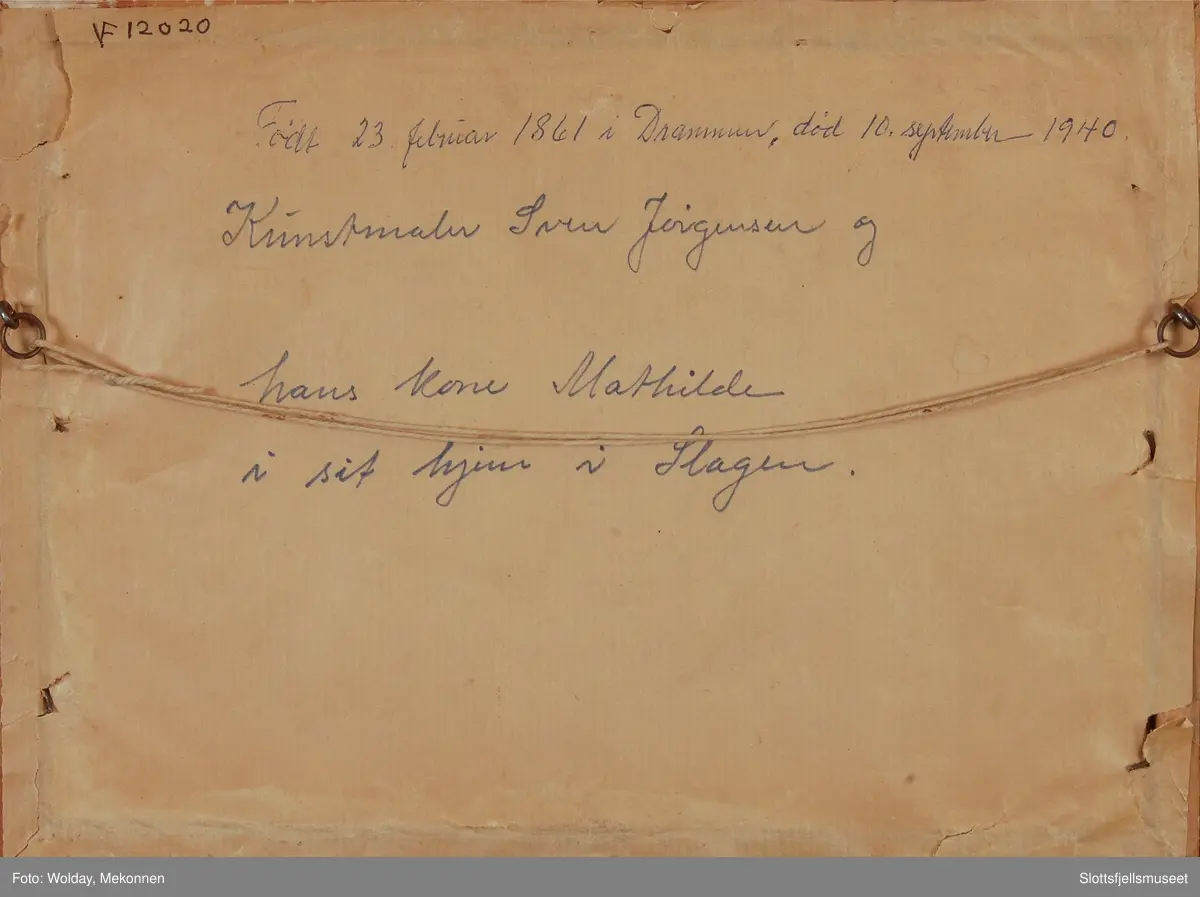 VF 12020
Født 23. februar 1861 i Drammen, død 10. september 1940.
Kunstmaler Sven Jørgensen og
hans kone Mathilde
i sit hjem i Slagen.
Foto: Wolday, Mekonnen
Slottsfjellsmuseet